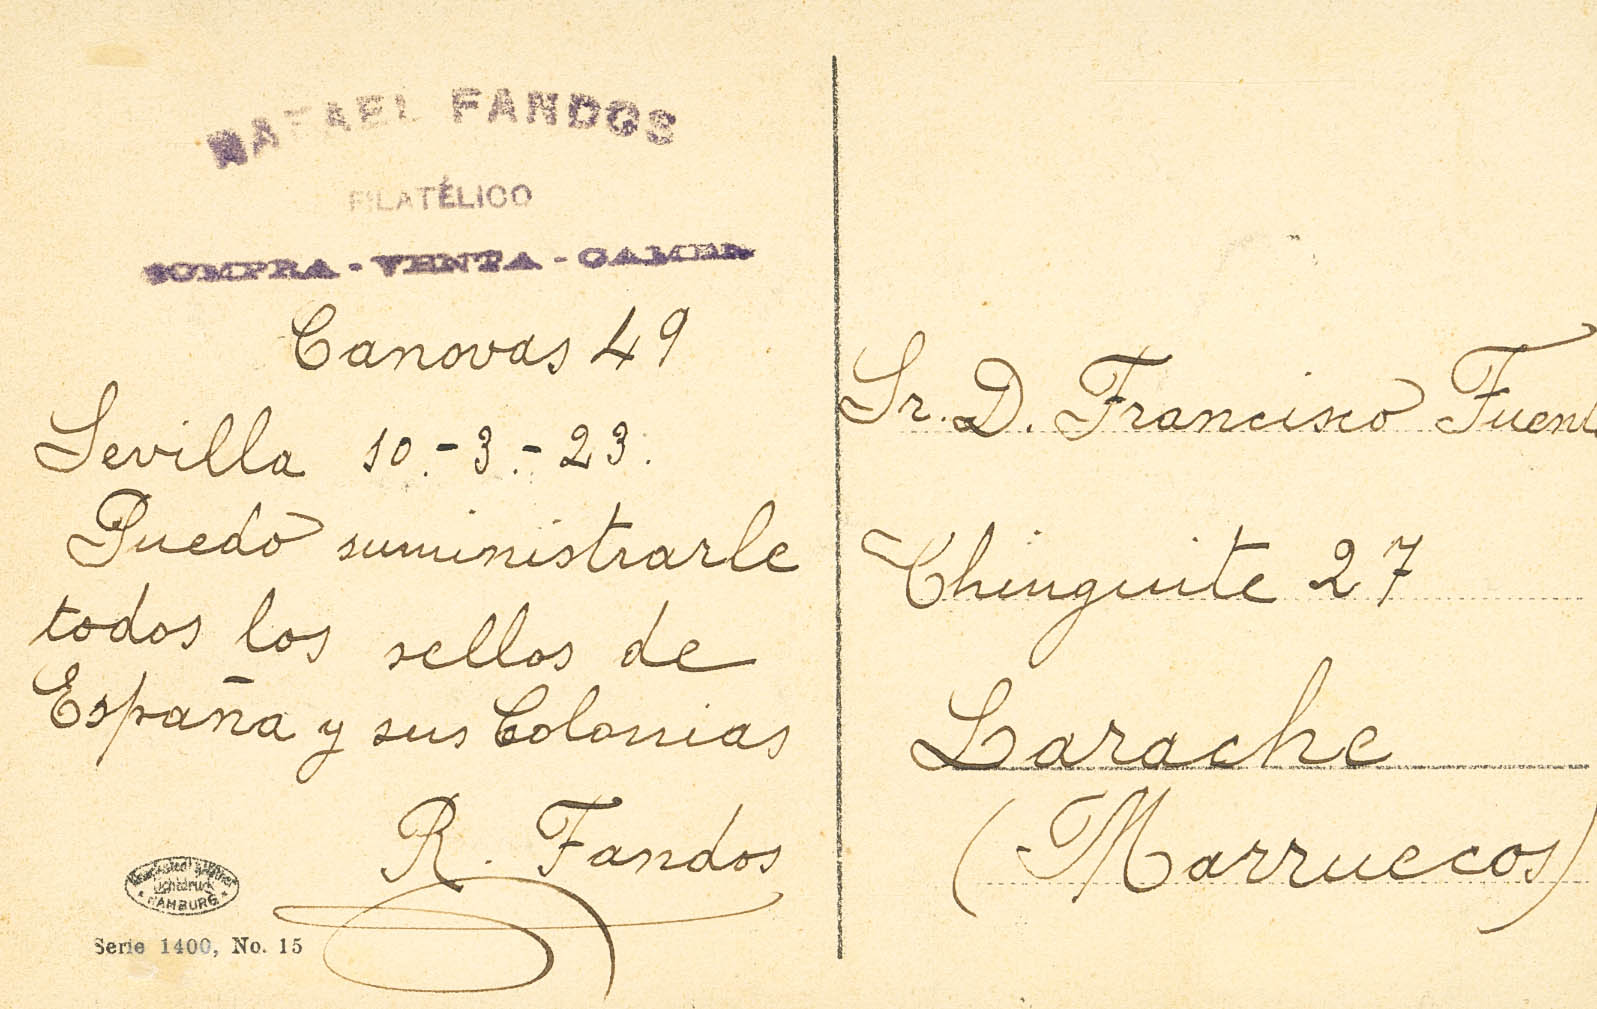 RAFAEL FANDOS
FILATÉLICO
COMPRA - VENTA - CAMBIO
Canovas 49
Sevilla 10.-3.-23.
Puedo suministrarle
todos los sellos de
España y sus Colonias
R. Fandos
HAMBURG
Serie 1400, No. 15
Sr. D. Francisco Fuent
Chinguite 27
Larache
(Marruecos)